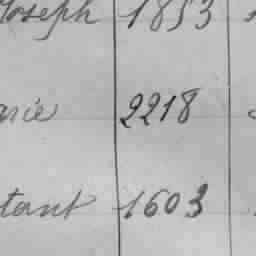 Joseph 1853
arie 2218
tant 1603